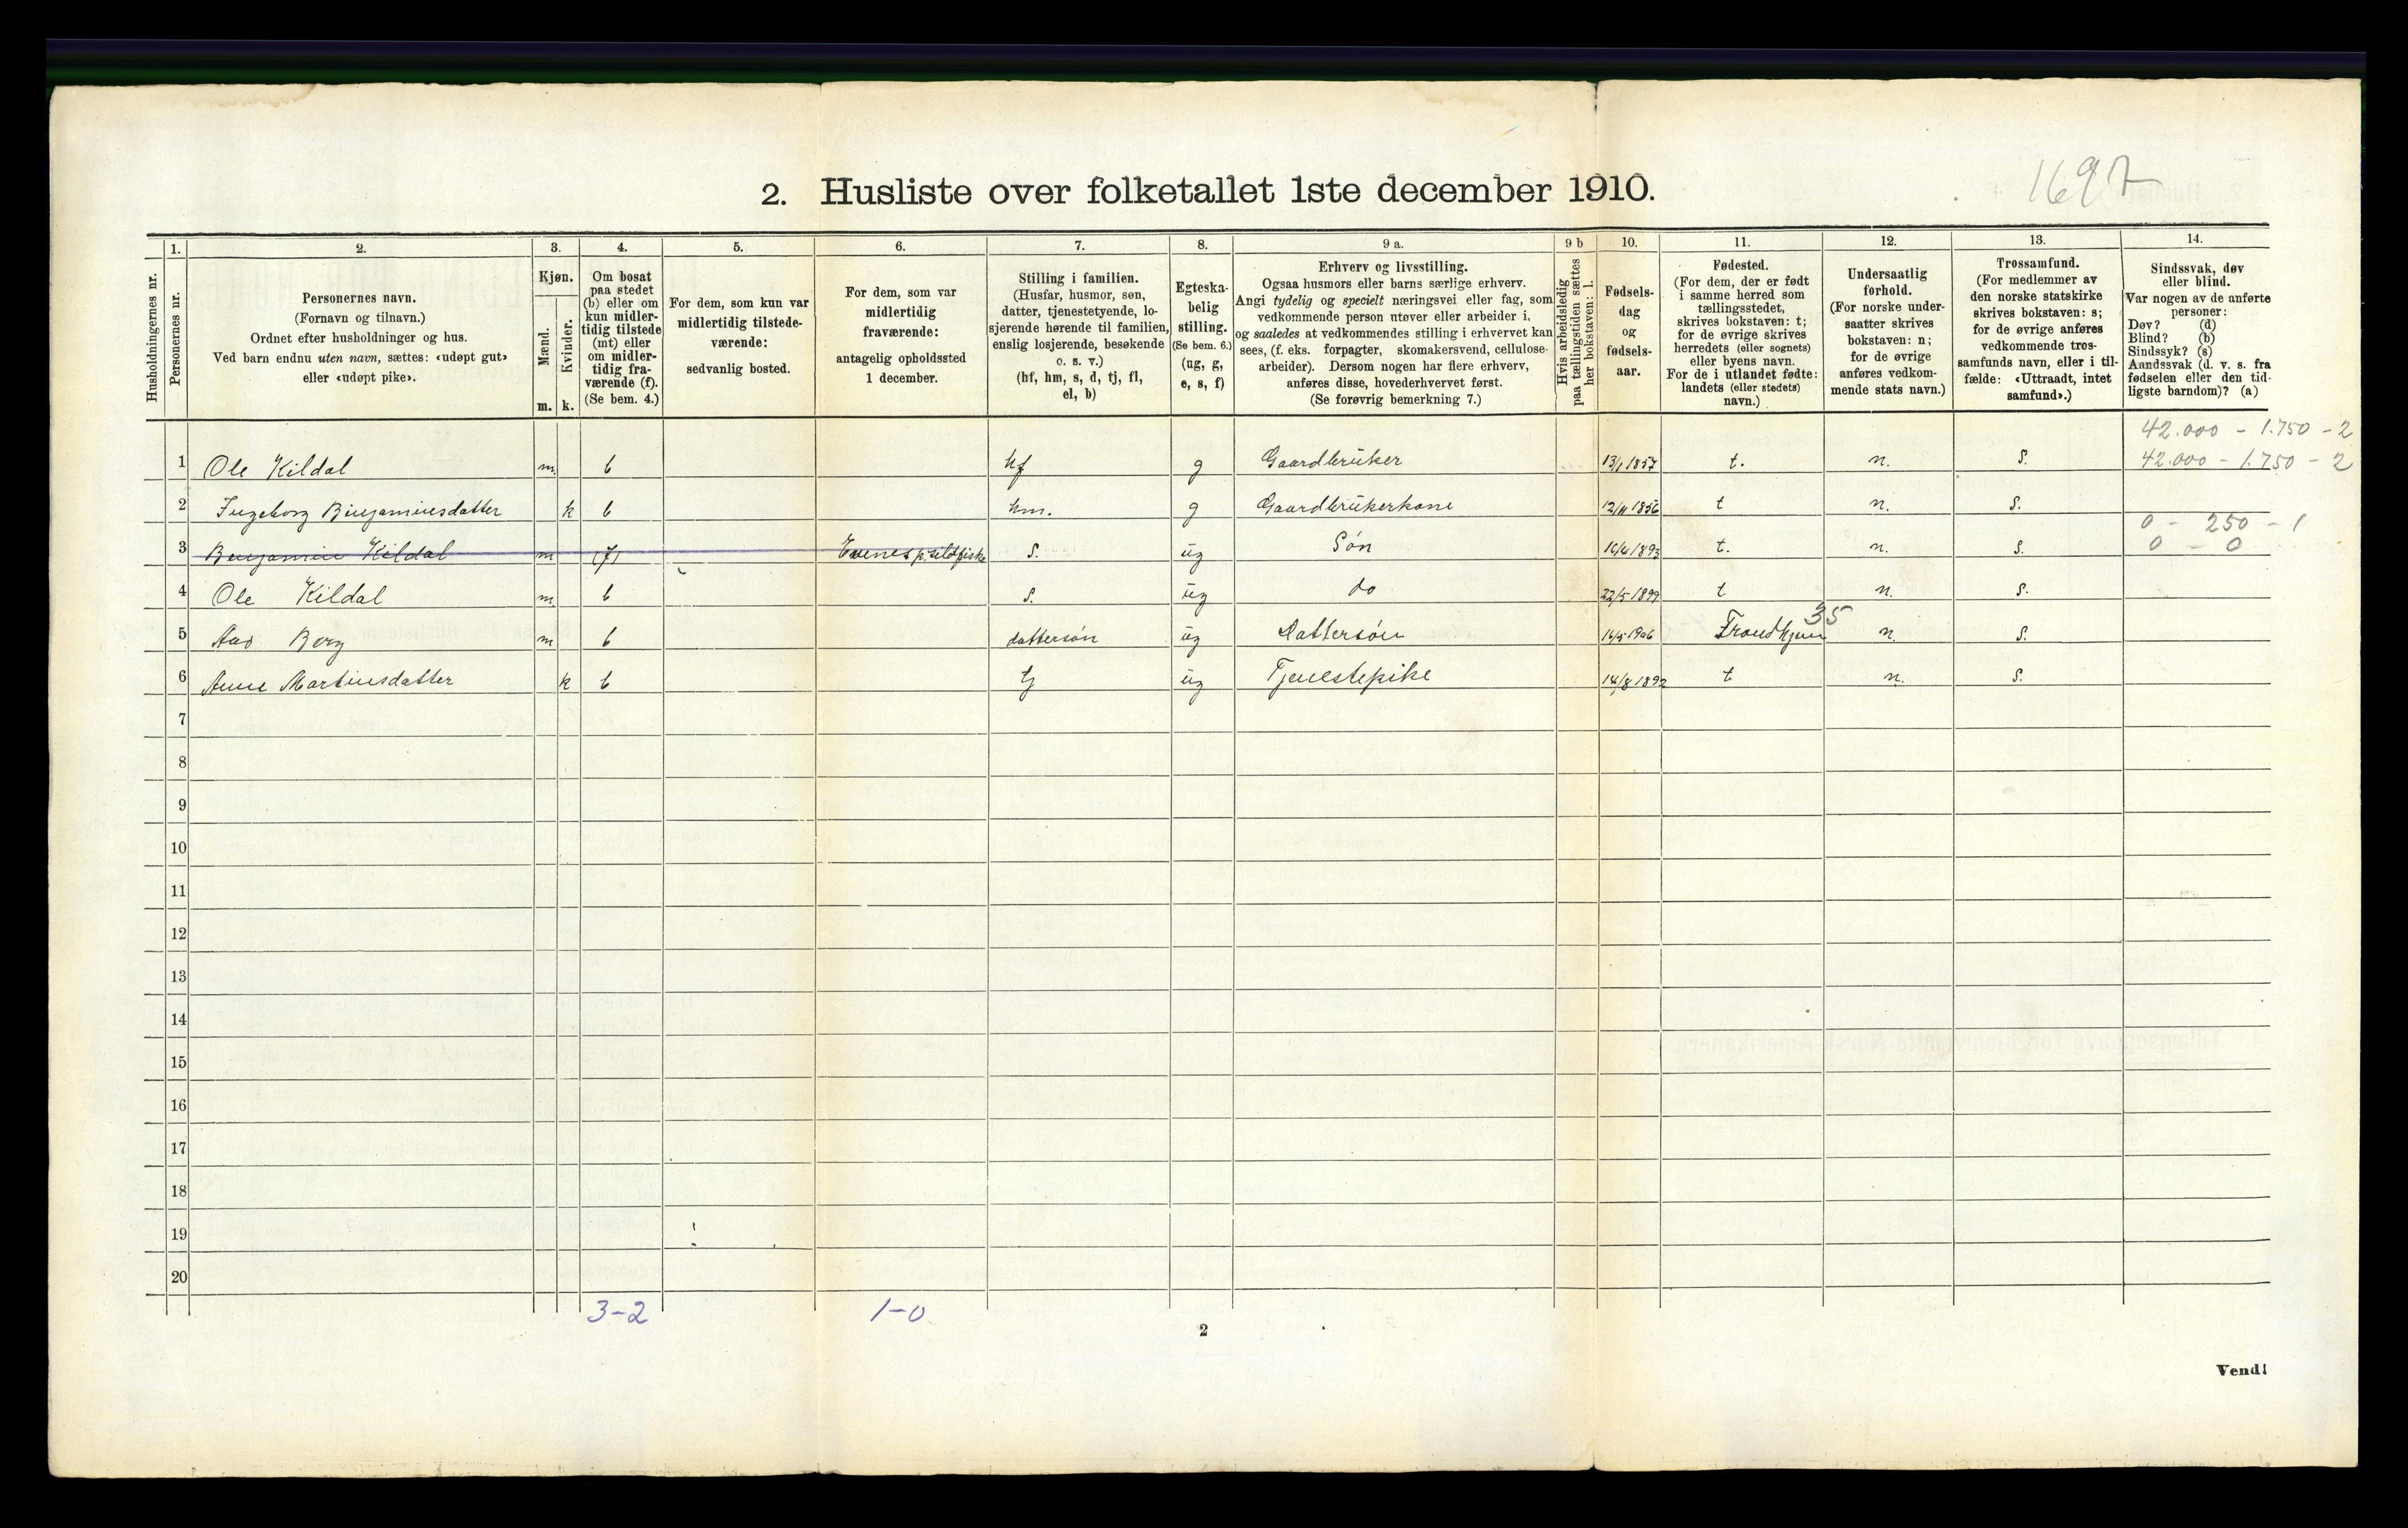 1697
2. Husliste over folketallet 1ste december 1910.
Husholdningernes nr.
1.
Personernes nr.
2.
Personernes navn.
(Fornavn og tilnavn.)
Ordnet efter husholdninger og hus.
Ved barn endnu uten navn, sættes: «udøpt gut»
eller «udøpt pike».
3.
Kjøn.
Mænd.
m.
Kvinder.
k.
4.
Om bosat
paa stedet
(b) eller om
kun midler-
tidig tilstede
(mt) eller
om midler-
tidig fra-
værende (f).
(Se bem. 4.)
5.
For dem, som kun var
midlertidig tilstede-
værende:
sedvanlig bosted.
6.
For dem, som var
midlertidig
fraværende:
antagelig opholdssted
1 december.
7.
Stilling i familien.
(Husfar, husmor, søn,
datter, tjenestetyende, lo-
sjerende hørende til familien,
enslig losjerende, besøkende
o. s. v.)
(hf, hm, s, d, tj, fl,
el, b)
8.
Egteska-
belig
stilling.
(Se bem. 6.)
(ug, g,
e, s, f)
9 a.
Erhverv og livsstilling.
Ogsaa husmors eller barns særlige erhverv.
Angi tydelig og specielt næringsvei eller fag, som
vedkommende person utøver eller arbeider i,
og saaledes at vedkommendes stilling i erhvervet kan
sees, (f. eks. forpagter, skomakersvend, cellulose-
arbeider). Dersom nogen har flere erhverv,
anføres disse, hovederhvervet først.
(Se forøvrig bemerkning 7.)
9 b
Hvis arbeidsledig
paa tællingstiden sættes
her bokstaven: l.
10.
Fødsels-
dag
og
fødsels-
aar.
11.
Fødested.
(For dem, der er født
i samme herred som
tællingsstedet,
skrives bokstaven: t;
for de øvrige skrives
herredets (eller sognets)
eller byens navn.
For de i utlandet fødte:
landets (eller stedets)
navn.)
12.
Undersaatlig
forhold.
(For norske under-
saatter skrives
bokstaven: n;
for de øvrige
anføres vedkom-
mende stats navn.)
13.
Trossamfund.
(For medlemmer av
den norske statskirke
skrives bokstaven: s;
for de øvrige anføres
vedkommende tros-
samfunds navn, eller i til-
fælde: «Uttraadt, intet
samfund».)
14.
Sindssvak, døv
eller blind.
Var nogen av de anførte
personer:
Døv? (d)
Blind? (b)
Sindssyk? (s)
Aandssvak (d. v. s. fra
fødselen eller den tid-
ligste barndom)? (a)
42.000 - 1.750 - 2
1 Ole Kildal m. b hf g Gaardbruker 13/1 1857 t. n. s. 42.000 - 1.750 - 2
2 Ingeborg Binjaminsdatter k b hm. g Gaardbrukerkone 12/11 1856 t n. s.
0 - 250 - 1
3 Benjamin Kildal m (f) Evenes p. sildfiske s. ug Søn 1893 t. n. s. 0 - 0
4 Ole Kildal m. b s. ug do 22/5 1899 t n. s.
35
5 Aas Berg m b dattersøn ug Dattersøn 14/5 1906 Trondhjem n. s.
6 Anne Martinsdatter k b tj ug Tjenestepike 14/8 1892 t n. s.
7
8
9
10
11
12
13
14
15
16
17
18
19
20
3-2 1-0
2
Vend!